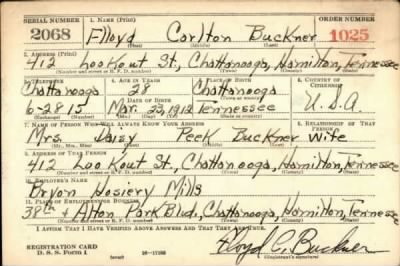 SERIAL NUMBER 1. NAME (Print) ORDER NUMBER
2068 Flloyd Carlton Buckner 1025
(First) (Middle) (Last)
2. ADDRESS (Print)
412 Lookout St., Chattanooga, Hamilton, Tennessee
(Number and street or R. F. D. number) (Town) (County) (State)
3. TELEPHONE 4. AGE IN YEARS 5. PLACE OF BIRTH 6. COUNTRY OF CITIZENSHIP
Chattanooga 28 Chattanooga
DATE OF BIRTH
6-2815 Mar. 23, 1912 Tennessee U.S.A
7. NAME OF PERSON WHO WILL ALWAYS KNOW YOUR ADDRESS 8. RELATIONSHIP OF THAT PERSON
Mrs. Daisy Peek Buckner Wife
(Mr., Mrs., Miss) (First) (Middle) (Last)
9. ADDRESS OF THAT PERSON
412 Lookout St., Chattanooga, Hamilton, Tennessee
(Number and street or R. F. D. number) (Town) (County) (State)
10. EMPLOYER'S NAME
Bryon Hosiery Mills
11. PLACE OF EMPLOYMENT OR BUSINESS
38th Alton Park Blvd., Chattanooga, Hamilton, Tennessee
(Number and street or R. F. D. number) (Town) (County) (State)
I AFFIRM THAT I HAVE VERIFIED ABOVE ANSWERS AND THAT THEY ARE TRUE.
REGISTRATION CARD
D. S. S. Form 1 Floyd C. Buckner
(Registrant's signature)